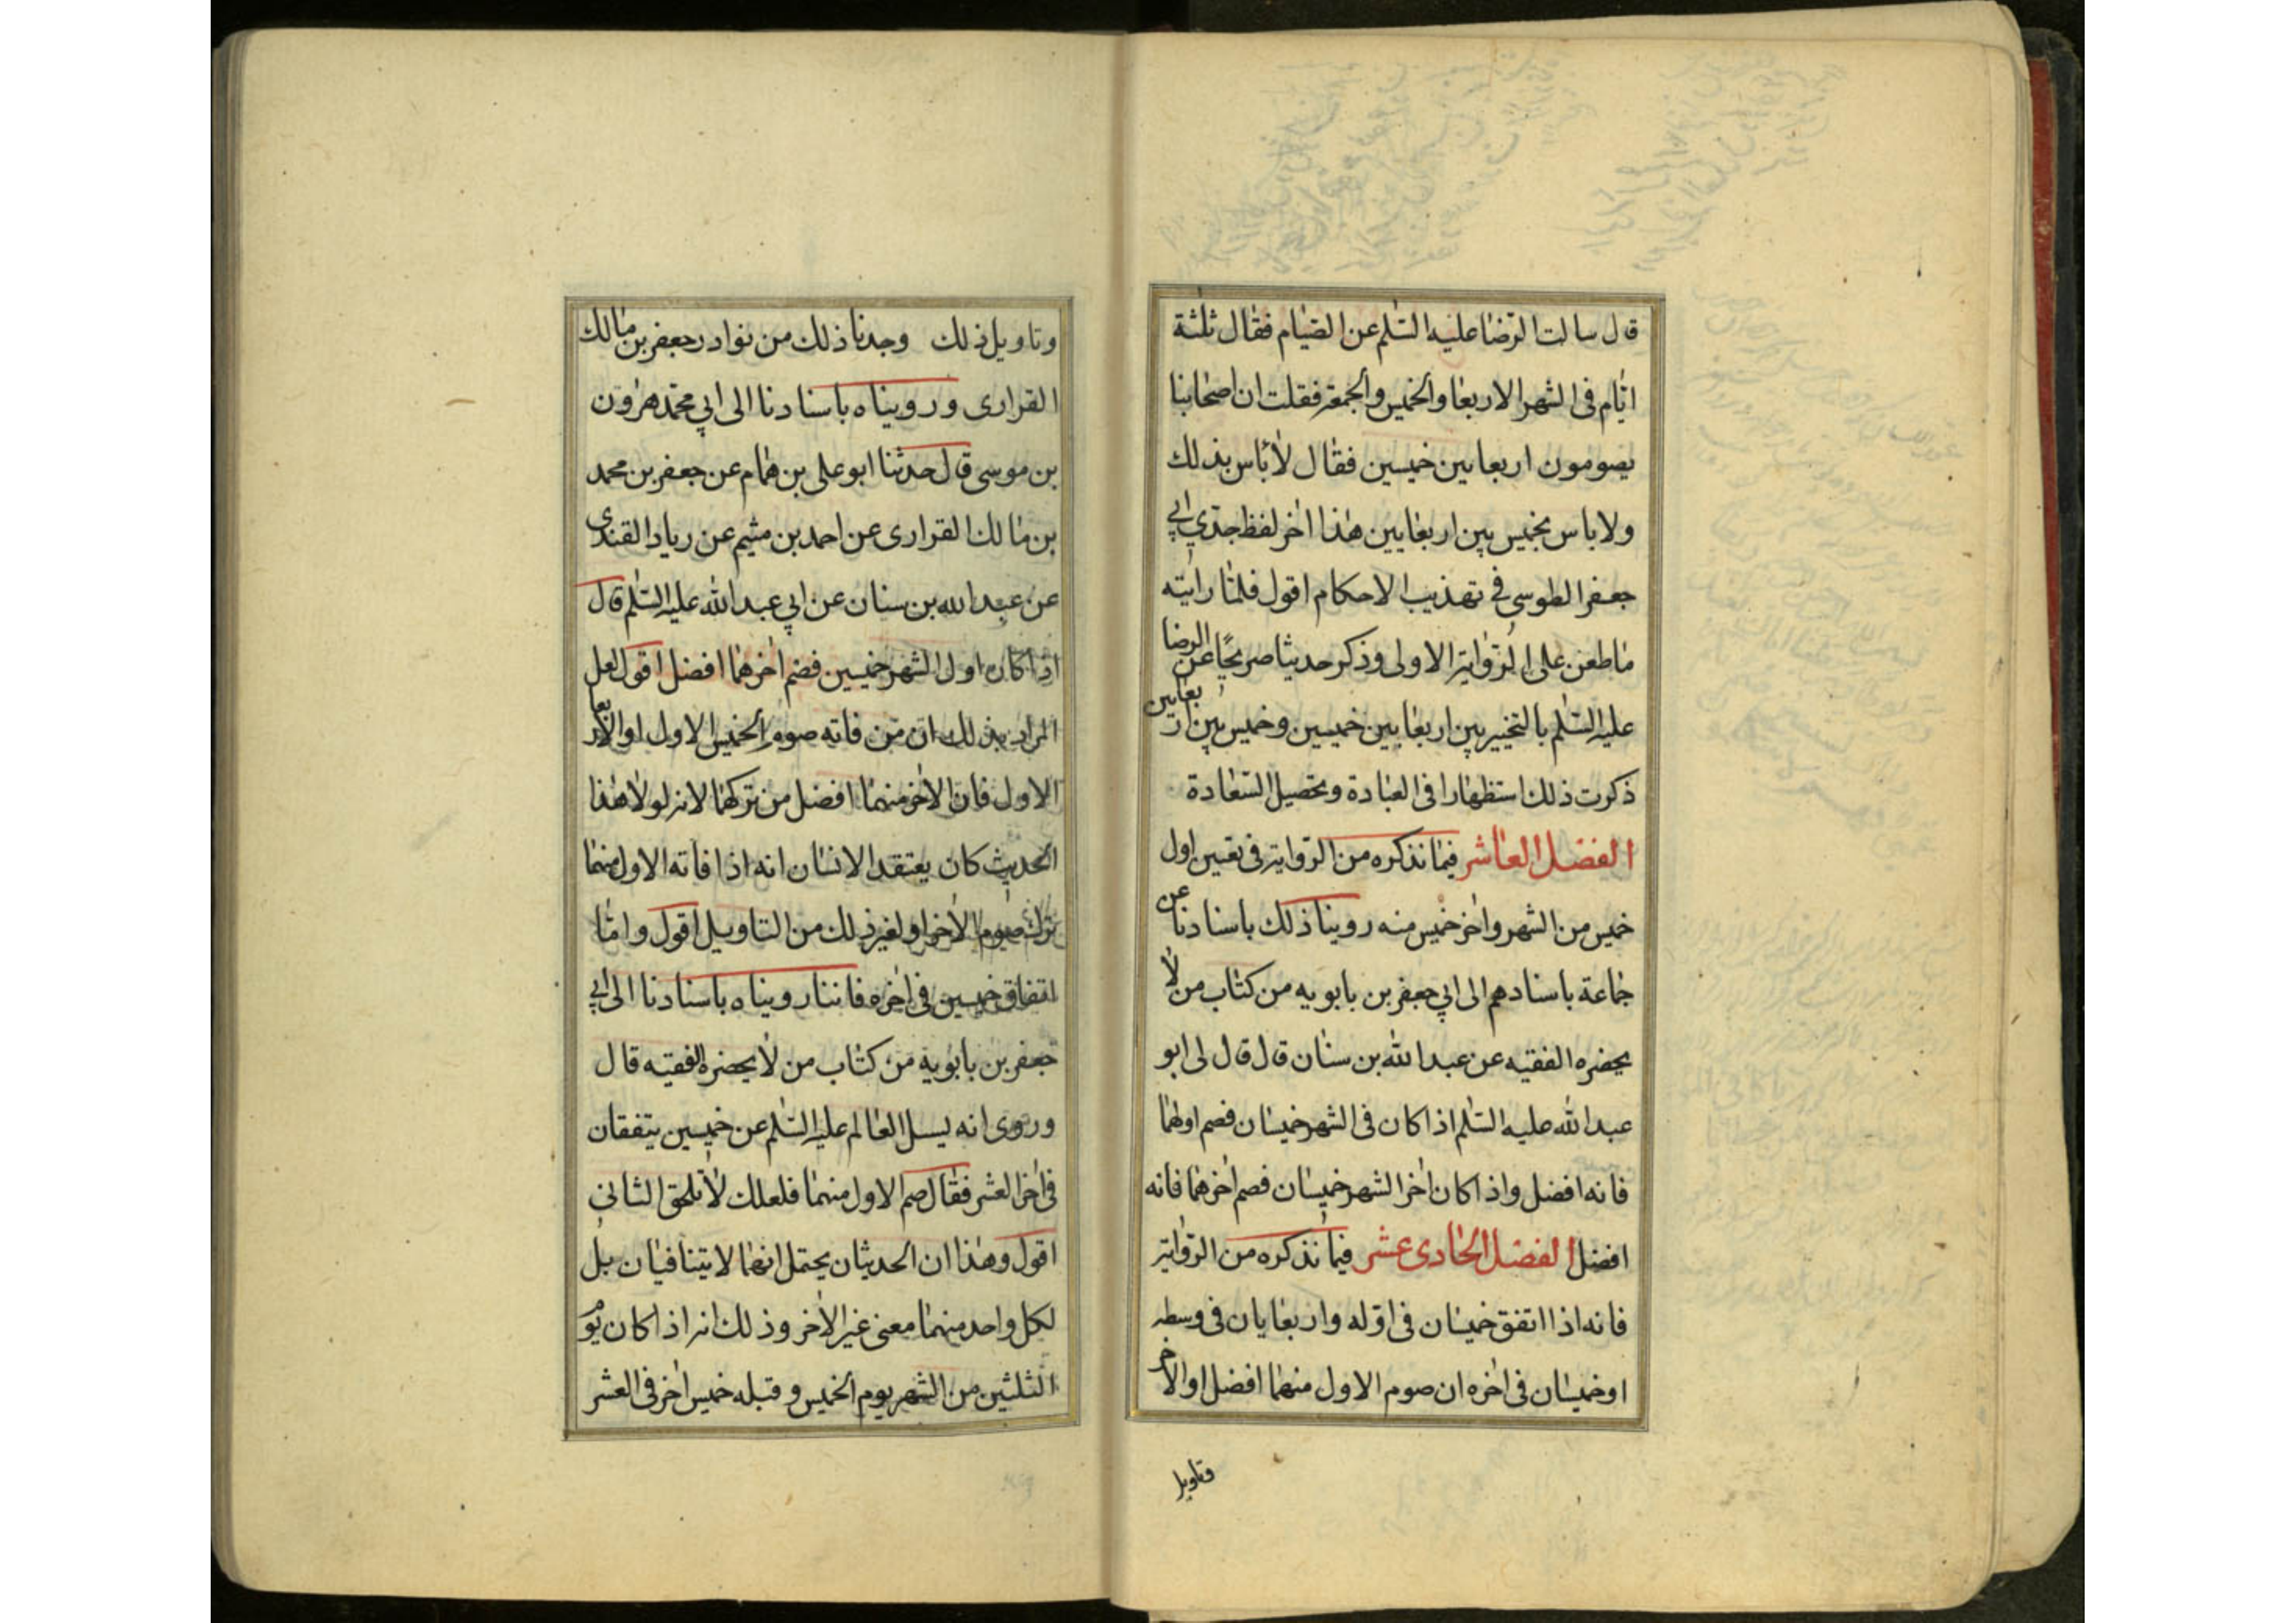 قال سالت الرضا عليه السلم عن الصيام فقال ثلثة
ايام فى الشهر الاربعا والخميس والجمعة فقلت ان اصحابنا
يصومون اربعا بين خميسين فقال لا باس بذلك
ولا باس بخميس بين اربعايين هذا اخر لفظ جدي ابي
جعفر الطوسى فى تهذيب الاحكام اقول فلما رايته
ما طعن على الرواية الاولى وذكر حديثا صريحا عن الرضا
عليه السلم بالتخيير بين اربعا بين خميسين وخميس بين اربعايين
ذكرت ذلك استظهارا فى العبادة وتحصيل السعادة
الفصل العاشر فيما نذكره من الرواية فى تعيين اول
خميس من الشهر واخر خميس منه روينا ذلك باسنادنا عن
جماعة باسنادهم الى ابي جعفر بن بابويه من كتاب من لا
يحضره الفقيه عن عبد الله بن سنان قال قال لى ابو
عبد الله عليه السلم اذا كان فى الشهر خميسان فصم اولهما
فانه افضل واذا كان اخر الشهر خميسان فصم اخرهما فانه
افضل الفصل الحادى عشر فيما نذكره من الرواية
فانه اذا اتفق خميسان فى اوله واربعايان فى وسطه
او خميسان فى اخره ان صوم الاول منهما افضل او الاخر
وتاويل
وتاويل ذلك وجدنا ذلك من نوادر جعفر بن مالك
القرارى ورويناه باسنادنا الى ابي محمد هرون
بن موسى قال حدثنا ابو على بن همام عن جعفر بن محمد
بن مالك القرارى عن احمد بن مشيم عن رياد القندى
عن عبد الله بن سنان عن ابي عبد الله عليه السلم قال
اذا كان اول الشهر خميسين فصم اخرهما افضل اقول لعل
المراد بذلك ان من فاته صوم الخميس الاول او الاربعا
الاول فان الاخر منهما افضل من تركهما لانه لولا هذا
الحديث كان يعتقد الانسان انه اذا فاته الاول منهما
ترك صوم الاخر او لغير ذلك من التاويل اقول واما
اتفاق خميسين فى اخره فاننا رويناه باسنادنا الى ابي
جعفر بن بابويه من كتاب من لا يحضره الفقيه قال
وروى انه ليسل العالم عليه السلم عن خميسين يتفقان
فى اخر العشر فقال صم الاول منهما فلعلك لا تلحق الثاني
اقول وهذا ان الحديثان يحتمل انهما لا يتنافيان بل
لكل واحد منهما معنى غير الاخر وذلك انه اذا كان يوم
الثلثين من الشهر يوم الخميس وقبله خميس اخر فى العشر